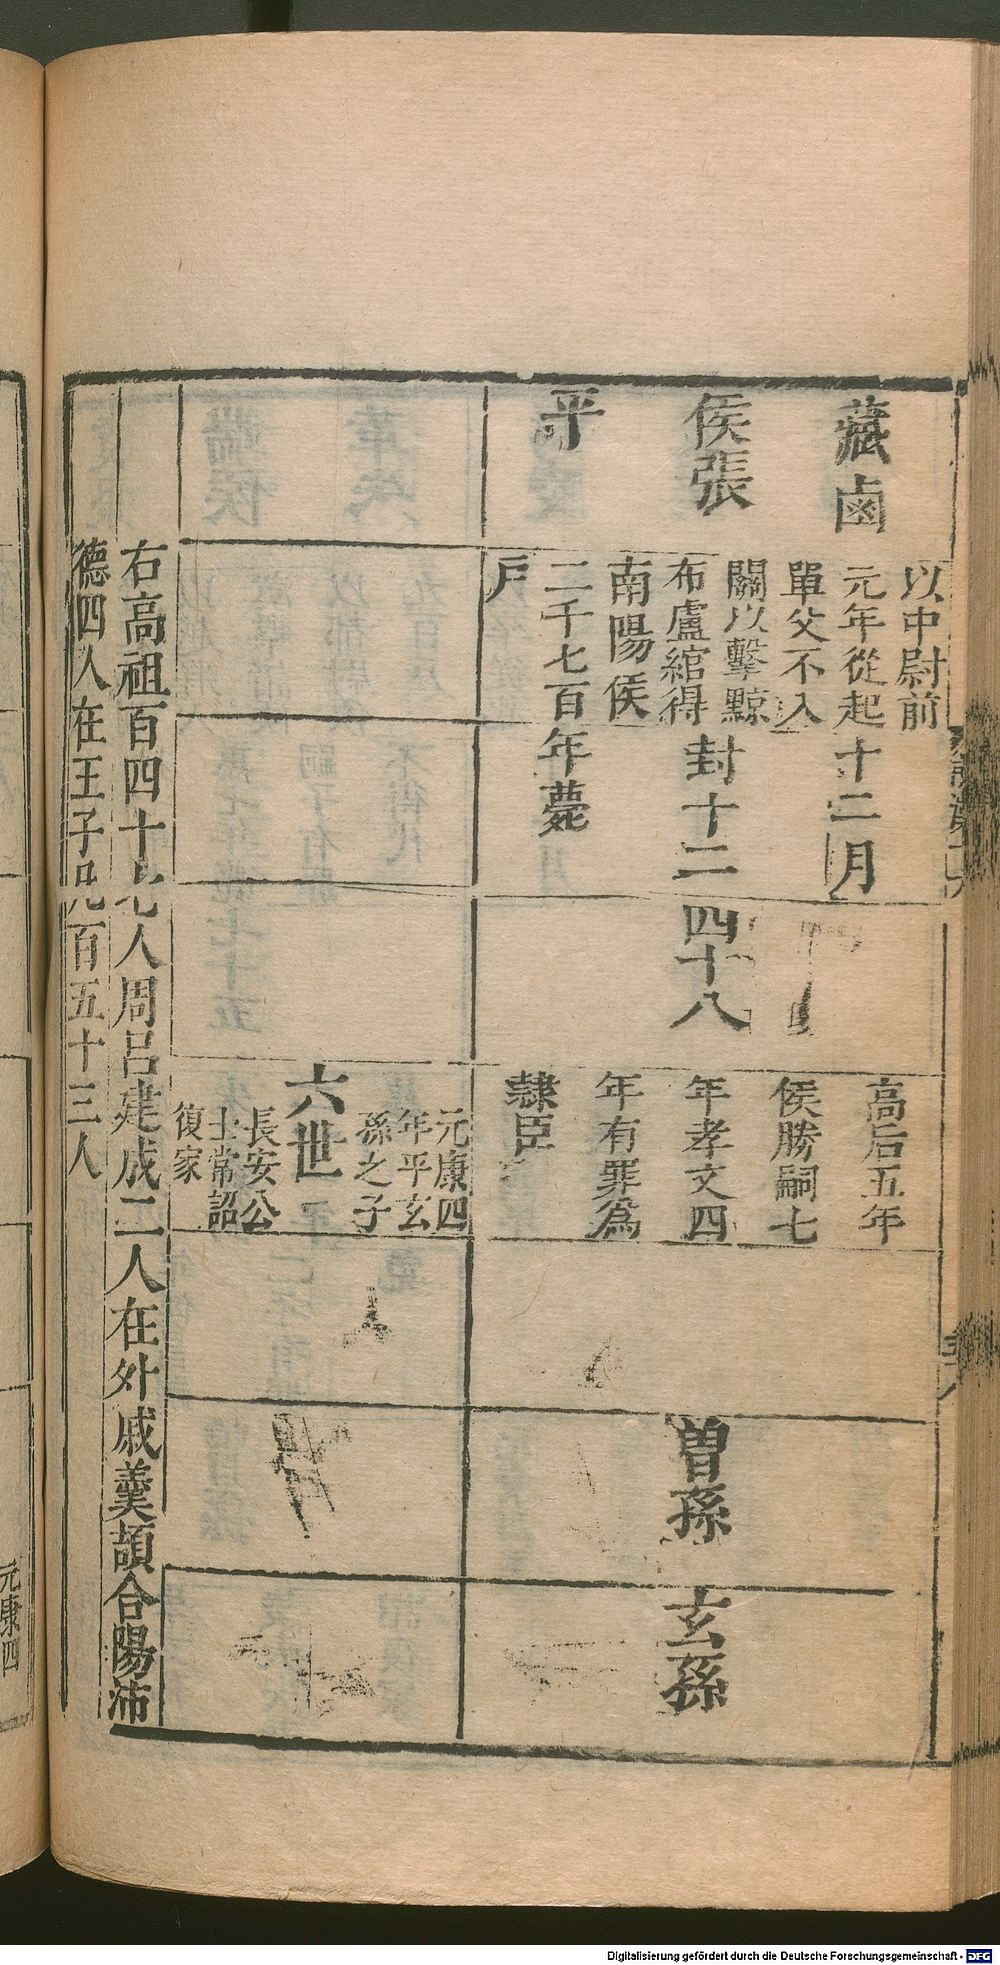 藏鹵
侯張
平
以中尉前
元年從起
單父不入
關以擊黥
布盧綰得
南陽侯
二千七百
戶
十二月
封十二
年薨
四十八
高后五年
侯勝嗣七
年孝文四
年有罪爲
隸臣
曾孫
玄孫
六世
元康四
年平玄
孫之子
長安公
士常詔
復家
右高祖百四十七人周呂建成二人在外戚羹頡合陽沛
德四人在王子凡百五十三人
元康四
Digitalisierung gefördert durch die Deutsche Forschungsgemeinschaft - DFG